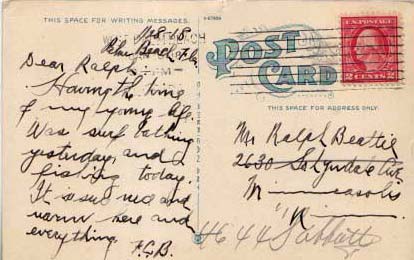 THIS SPACE FOR WRITING MESSAGES.
Palm Beach, Fla
Dear Ralph,
Having the time
of my young life.
Was surf bathing
yesterday, and
fishing today.
It is and
warm here and
everything.
F.G.B.
POST CARD
2 CENTS 2
THIS SPACE FOR ADDRESS ONLY.
Mr Ralph Beattie
2630 Ave
Minneapolis
Minn.
4644 Abbott